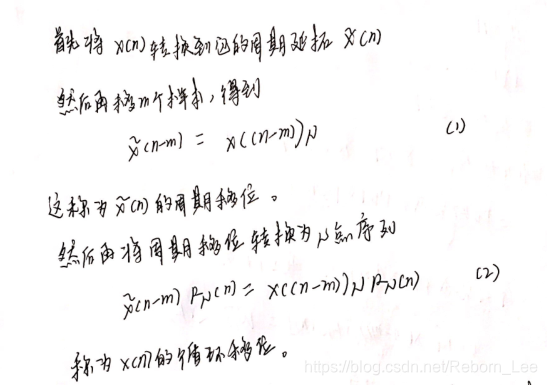 首先将 x(n) 转换到它的周期延拓 x̃(n)
然后再移m个样本，得到
x̃(n-m) = x((n-m))N (1)
这称为 x̃(n) 的周期移位。
然后再将周期移位转换为N点序列
x̃(n-m) RN(n) = x((n-m))N RN(n) (2)
称为 x(n) 的循环移位。
https://blog.csdn.net/Reborn_Lee